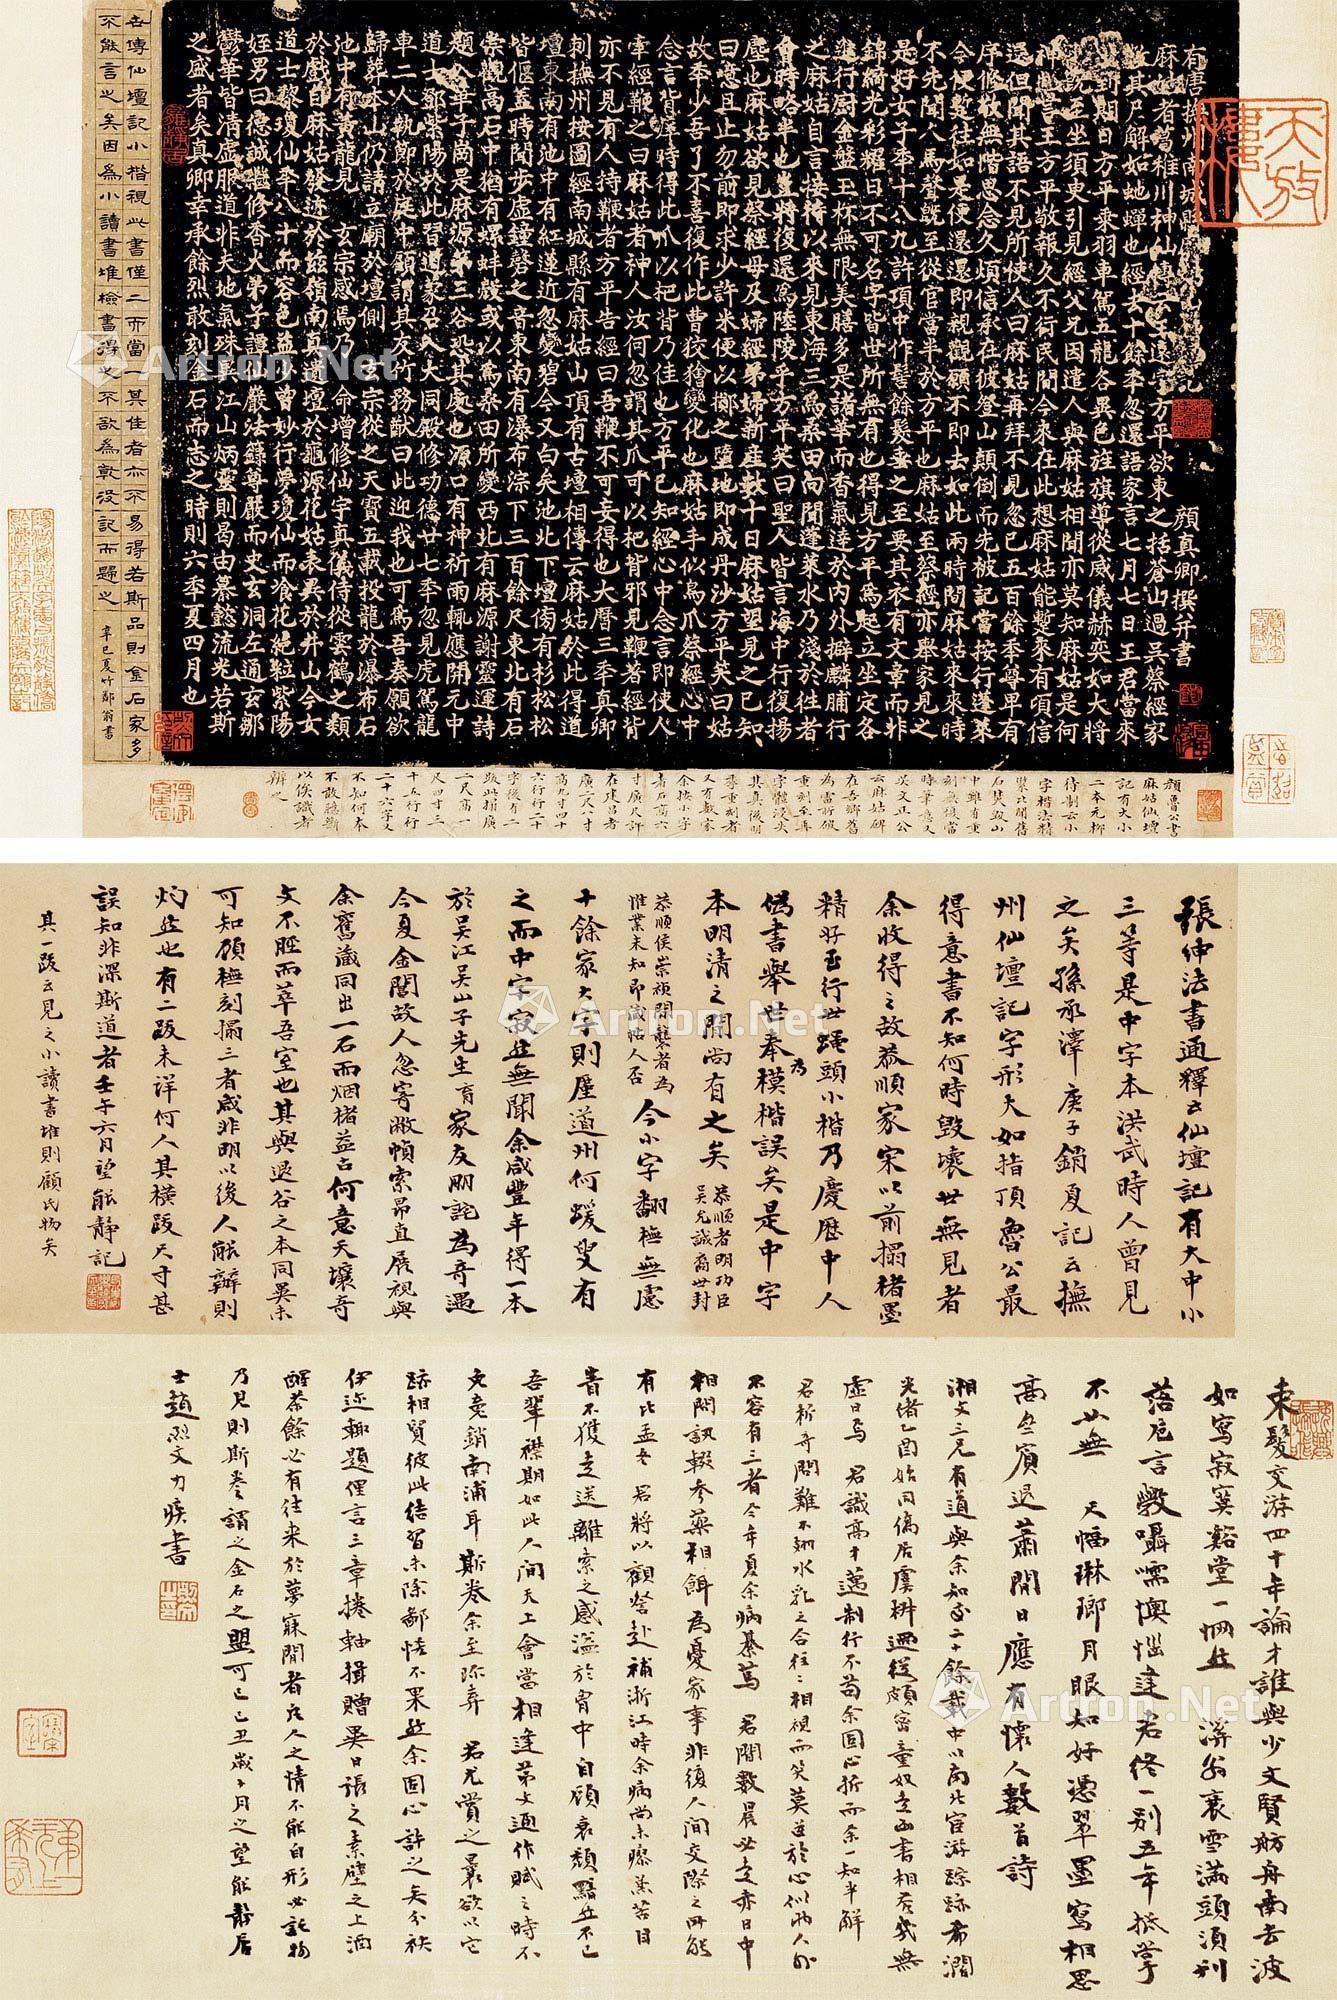 有唐撫州南城縣麻姑山仙壇記 顏真卿撰并書
麻姑者葛稚川神仙傳云王遠字方平欲東之括蒼山過吳蔡經家
教其尸解如蛇蟬也經去十餘年忽還語家言七月七日王君當來
過到期日方平乘羽車駕五龍各異色旌旗導從威儀赫奕如大將
也既至坐須臾引見經父兄因遣人與麻姑相聞亦莫知麻姑是何
神也言王方平敬報久不行民間今來在此想麻姑能暫來有頃信
還但聞其語不見所使人曰麻姑再拜不見忽已五百餘年尊卑有
序修敬無階思念久煩信承在彼登山顛倒而先被記當按行蓬萊
今便暫往如是便還還即親觀願不即去如此兩時間麻姑來來時
不先聞人馬聲既至從官當半於方平也麻姑至蔡經亦舉家見之
是好女子年十八九許頂中作髻餘髮垂之至要其衣有文章而非
錦綺光彩耀日不可名字皆世所無有也得見方平方平為起立坐定各
進行廚金盤玉杯無限美膳多是諸華而香氣達於內外擗麟脯行
之麻姑自言接待以來見東海三為桑田向間蓬萊水乃淺於往者
會時略半也豈將復還為陸陵乎方平笑曰聖人皆言海中行復揚
塵也麻姑欲見蔡經母及婦經弟婦新產數十日麻姑望見之已知
曰噫且止勿前即求少許米便以擲之墮地即成丹沙方平笑曰姑
故年少吾了不喜復作此曹狡獪變化也麻姑手似鳥爪蔡經心中
念言背癢時得此爪以杷背乃佳也方平已知經心中念言即使人
牽經鞭之曰麻姑者神人汝何忽謂其爪可以杷背邪見鞭著經背
亦不見有人持鞭者方平告經曰吾鞭不可妄得也大曆三年真卿
刺撫州按圖經南城縣有麻姑山頂有古壇相傳云麻姑於此得道
壇東南有池中有紅蓮近忽變碧今又白矣池北下壇傍有杉松松
皆偃蓋時聞步虛鐘磬之音東南有瀑布淙下三百餘尺東北有石
崇觀高石中猶有螺蚌殼或以為桑田所變西北有麻源謝靈運詩
題入華子崗是麻源第三谷恐其處也源口有神祈雨輒應開元中
道士鄧紫陽於此習道蒙召入大同殿修功德廿七年忽見虎駕龍
車二人執節於庭中顧謂其友竹務猷曰此迎我也可為吾奏願欲
歸葬本山仍請立廟於壇側玄宗從之天寶五載投龍於瀑布石
池中有黃龍見玄宗感焉乃命增修仙宇真儀侍從雲鶴之類
於戲自麻姑發迹於茲嶺南真遺壇於龜源花姑表異於井山今女
道士黎瓊仙年八十而容色益少曾妙行夢瓊仙而飡花絕粒紫陽
姪男曰德誠繼修香火弟子譚仙巖法籙尊嚴而史玄洞左通玄鄒
鬱華皆清虛服道非夫地氣殊異江山炳靈則曷由纂懿流光若斯
之盛者矣真卿幸承餘烈敢刻金石而志之時則六年夏四月也
世傳仙壇記小楷視此書僅二而當一其佳者亦不易得若斯品則金石家多
不能言之矣因為小讀書堆檢書得之不敢為乾沒記而歸之 辛巳夏竹鄰翁書
顏魯公書
麻姑仙壇
記有大小
二本元柳
待制云小
字楷法精
緊比聞舊
石焚毀山
中雖有重
刻無復當
時筆意又
吳文正公
云麻姑碑
在吾鄉舊
為雷所破
重刻至再
字體浸失
其真後明
季重刻者
又有數家
余按小字
者石高六
寸廣尺許
在建昌者
廣二尺八寸
高九寸四十
六行行二十
字後有二
跋此搨廣
二尺高一
尺四寸三
十五行行
二十六字又
不知何本
不敢臆斷
以俟識者
辨之
張紳法書通釋云仙壇記有大中小
三等是中字本洪武時人曾見
之矣孫承澤庚子銷夏記云撫
州仙壇記字形大如指頂魯公最
得意書不知何時毀壞世無見者
余收得之故恭順家宋以前搨楮墨
精好至行世蠅頭小楷乃慶歷中人
偽書舉世奉為模楷誤矣是中字
本明清之間尚有之矣 恭順者明功臣吳允誠裔世封
恭順侯崇禎間襲者為惟業未知即藏帖人否 今小字翻橅無慮
十餘家大字則屢道州何蝯叟有
之而中字寂然無聞余咸豐年得一本
於吳江吳山子先生育家友朋詫為奇遇
今夏金閶故人忽寄敝幀索昂直展視與
余舊藏同出一石而烟楮益古何意天壤奇
文不脛而萃吾室也其與退谷之本同異未
可知頋橅刻搨三者咸非明以後人能辦則
灼然也有二跋未詳何人其橫跋尺寸甚
誤知非深斯道者壬午六月望能靜記
其一跋云見之小讀書堆則顧氏物矣
束髮交游四十年論才誰與少文賢舫舟南去波
如寫寂寞谿堂一惘然 游翁衰雪滿頭須別
落卮言轂囁嚅懊惱逢君終一別五年抵掌
不曾無 天幅琳瑯月眼知好憑翠墨寫相思
高齋賓退蕭閒日應有懷人數首詩
湘文三兄有道與余知交二十餘載中以南北宦游踪跡希濶
光緒乙酉始同僑居虞州過從頗密童奴走函書相荅幾無
虛日焉 君識高才邁制行不苟余固心折而余一知半解
君析奇問難不翅水乳之合往往相視而笑莫逆於心似兩人外
不容有三者今年夏余病綦篤 君間數晨必走亦日中
相問訊輟參藥相餌為憂家事非復人間交際之所能
有比孟冬 君將以觀詧赴補浙江時余病尚未瘳蒸苦目
眚不獲走送離索之感溢於胷中自顧衰頹黯然不已
吾輩襟期如此人間天上會當相逢第文通作賦之時不
免竟銷南浦耳斯卷余至珍弆 君尤賞之曩欲以它
跡相貿彼此結習未除鄙恡不果然余固心許之矣分袂
伊邇輒題俚言三章捲軸揖贈異日張之素壁之上酒
醒茶餘必有往來於夢寐間者 故人之情不能自形必託物
乃見則斯卷謂之金石之盟可已己丑歲十月之望能靜居
士趙烈文力疾書
Artron.Net
Artron.Net
Artron.Net
Artron.Net
Artron.Net